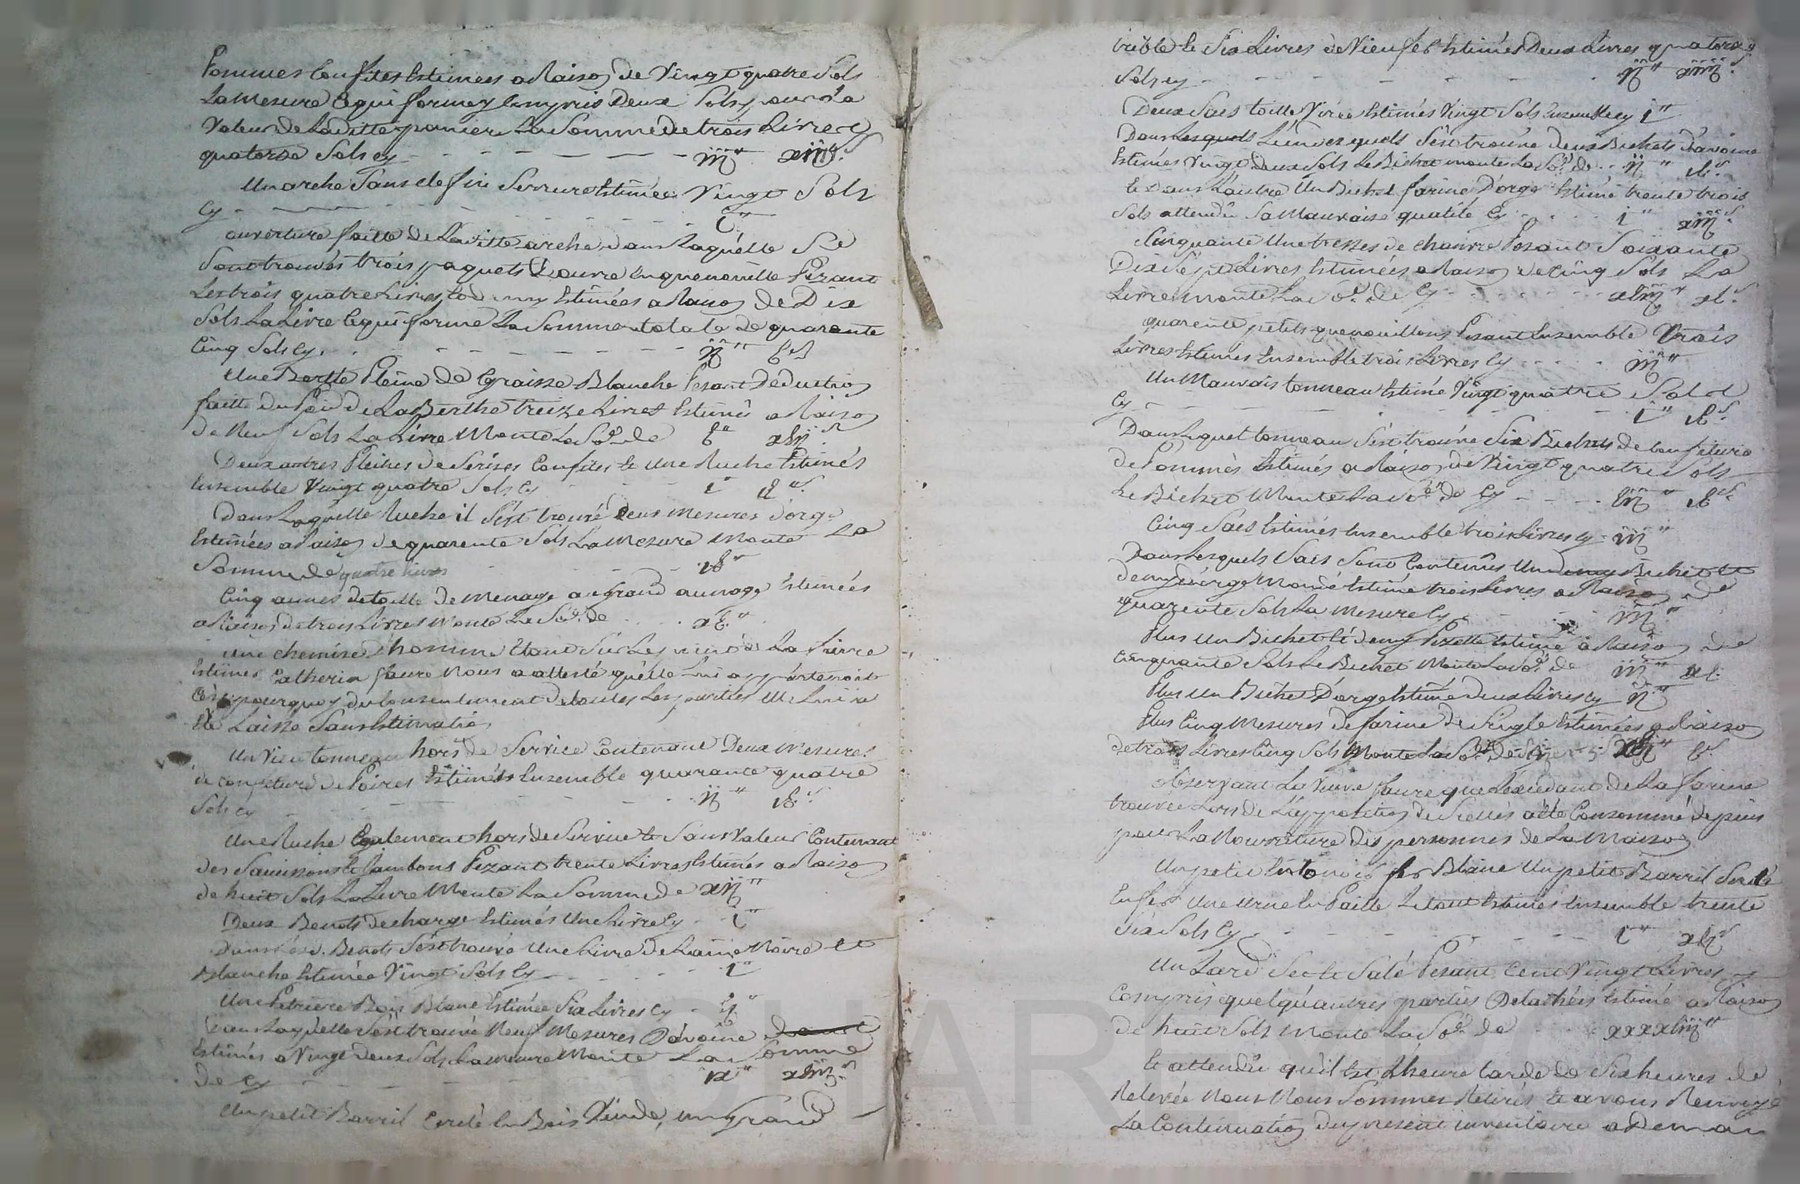 Pommes Confites Estimées a Raison de Vingt quatre Sols
La Mesure Ce qui forme y Compris Deux Sols pour la
Valeur de Laditte panier La Somme de trois Livres
quatorze Sols cy iij" xiiij s.
Un arche Sans clef ni Serrure Estimée Vingt Sols
Cy i"
ouverture faitte de Laditte arche dans Laquelle Se
Sont trouvés trois paquets Enquenouille Pezant
Les trois quatre Livres Et demy Estimées a Raison de Dix
Sols La Livre Ce qui forme La Somme totale de quarante
Cinq Sols Cy ij" v s
Une Pleine de Graisse Blanche Pesant Déduction
faitte du de La Berthe treize Livres Estimés a Raison
de Neuf Sols La Livre Monte La So.e de v" xvij s
Deux autres Pleines de Serises Confites Et Une Ruche Estimés
Ensemble Vingt quatre Sols Cy i" iv s.
Dans Laquelle Ruche il S'est trouvé Deux Mesures d'orge
Estimées a Raison de quarante Sols La Mesure Monte La
Somme de quatre livres iv"
Cinq aunes de toille de Menage au grand aunage Estimées
a Raison de trois Livres Monte La So.e de xv"
une chemise d'homme Etant Sur La Pierre
Estimée Catherin faure Nous a attesté qu'elle Lui appartenoit
C'est pourquoy du Consentement de toutes Les parties Elle Lui a
Eté Laissé Sans Estimation
Un Vieu tonneau hors de Service Contenant Deux Mesures
de confiture de Poires Estimées Ensemble quarante quatre
Sols cy ij" iv s
Une Ruche Egalement hors de Service Et Sans Valeur Contenant
des Saucissons Et Jambons Pezant trente Livres Estimés a Raison
de huit Sols La Livre Monte La Somme de xij"
Deux Benots de charge Estimés Une Livre Cy i"
Dans Lesd. Benots S'est trouvé Une Livre de Laine Noire Et
Blanche Estimée Vingt Sols Cy i"
Une Bois Blanc Estimée Six Livres Cy vj"
Dans Laquelle S'est trouvé Neuf Mesures D'avoine
Estimées a Vingt Deux Sols La Mesure Monte La Somme
De Cy ix" xviij s
Un petit Barril Cerclé En Bois Vuide, un grand
Et Six Livres de Vieu fer Estimés Deux Livres quatorze
Sols cy ij" xiiij s.
Deux Sacs toille Estimés Vingt Sols Ensemble cy i"
Dans L'un desquels S'est trouvé Deux Bichets D'avoine
Estimés Vingt Deux Sols Le Bichet monte La So.e de ij" iv s.
Et Dans L'autre Un Bichet farine D'orge Estimé trente trois
Sols attendu Sa Mauvaise qualité Cy i" xiij s
Cinquante Une tresses de chanvre Pezant Soixante
Dix Sept Livres Estimées a Raison de Cinq Sols La
Livre monte La So.e de Cy
quarente petits quenouillons Pesant Ensemble trois
Livres Estimés Ensemble trois Livres Cy iij"
Un Mauvais tonneau Estimé Vingt quatre Sols
Cy i" iv s.
Dans Lequel tonneau S'est trouvé Six Bichets de Confiture
de Pommes Estimés a Raison de Vingt quatre Sols
Le Bichet Monte La So.e de Cy vij" iv s.
Cinq Sacs Estimés Ensemble trois Livres Cy iij"
Dans Lesquels Sacs Sont Contenus Un demy Bichet Et
demy d'orge Mondé Estimé trois Livres a Raison de
quarente Sols La Mesure Cy iij"
Plus Un Bichet Et demy Estimé a Raison de
Cinquante Sols Le Bichet Monte La So.e de iij" xv s.
Plus Un Bichet D'orge Estimé deux Livres Cy ij"
Plus Cinq Mesures de farine de Seigle Estimées a Raison
de trois Livres Cinq Sols Monte La So.e de xvj" v s
observant La Veuve faure que L'excédant de La farine
trouvée Lors de L'apposition des Scellés a été Consommé depuis
pour La Nourriture Des personnes de La Maison
Un petit Entonnoir fer Blanc Un petit Barril Cerclé
En fer Une Urne En Paille Le tout Estimés Ensemble trente
Six Sols Cy i" xvj s
Un Lard Sec Et Salé Pesant Cent Vingt Livres
Compris quelqu'autres parties Detachées Estimé a Raison
de huit Sols Monte La So.e de xxxxviij"
Et attendu qu'il Est L'heure tarde de Six heures de
Relevée Nous Nous Sommes Retirés Et avons Renvoyé
La Continuation du present inventaire a Demain
CHAR